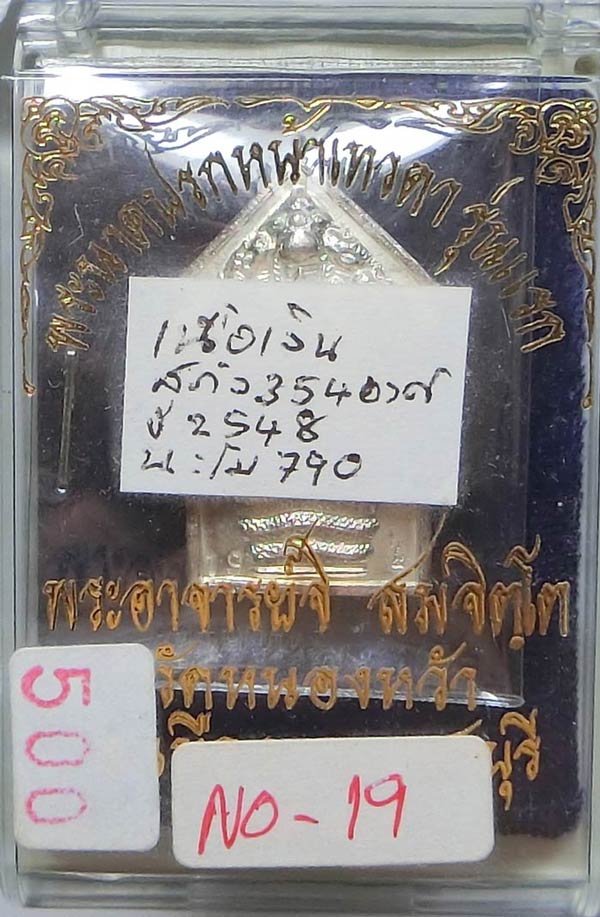 พระนาคปรกหน้าเทวดา รุ่นแรก
เนื้อเงิน
สร้าง 354 องค์
ปี 2548
นะโม 790
พระอาจารย์จิ สมจิตฺโต
วัดหนองหว้า
บุรี
500
NO-19